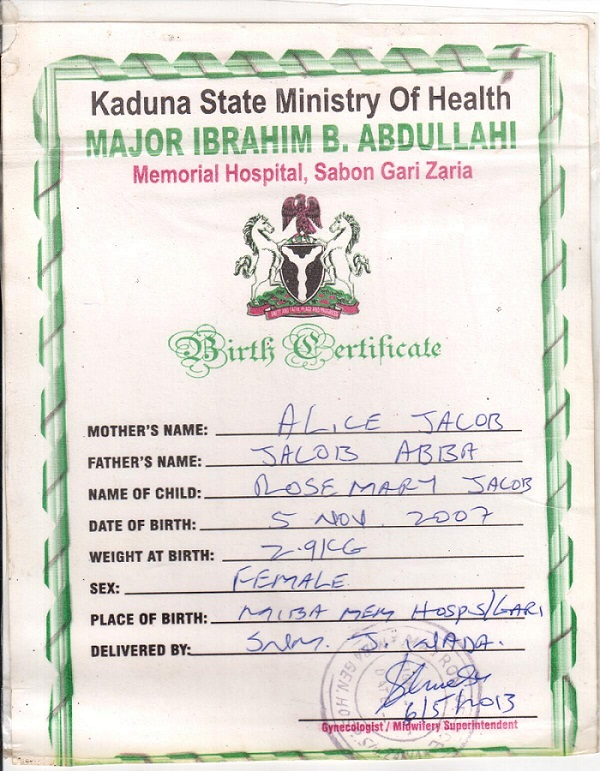 Kaduna State Ministry Of Health
MAJOR IBRAHIM B. ABDULLAHI
Memorial Hospital, Sabon Gari Zaria
Birth Certificate
MOTHER'S NAME: ALICE JACOB
FATHER'S NAME: JACOB ABBA
NAME OF CHILD: ROSEMARY JACOB
DATE OF BIRTH: 5 NOV. 2007
WEIGHT AT BIRTH: 2.9KG
SEX: FEMALE
PLACE OF BIRTH: MIBA MEM HOSP S/GARI
DELIVERED BY: J.
6/5/2013
Gynecologist / Midwifery Superintendent